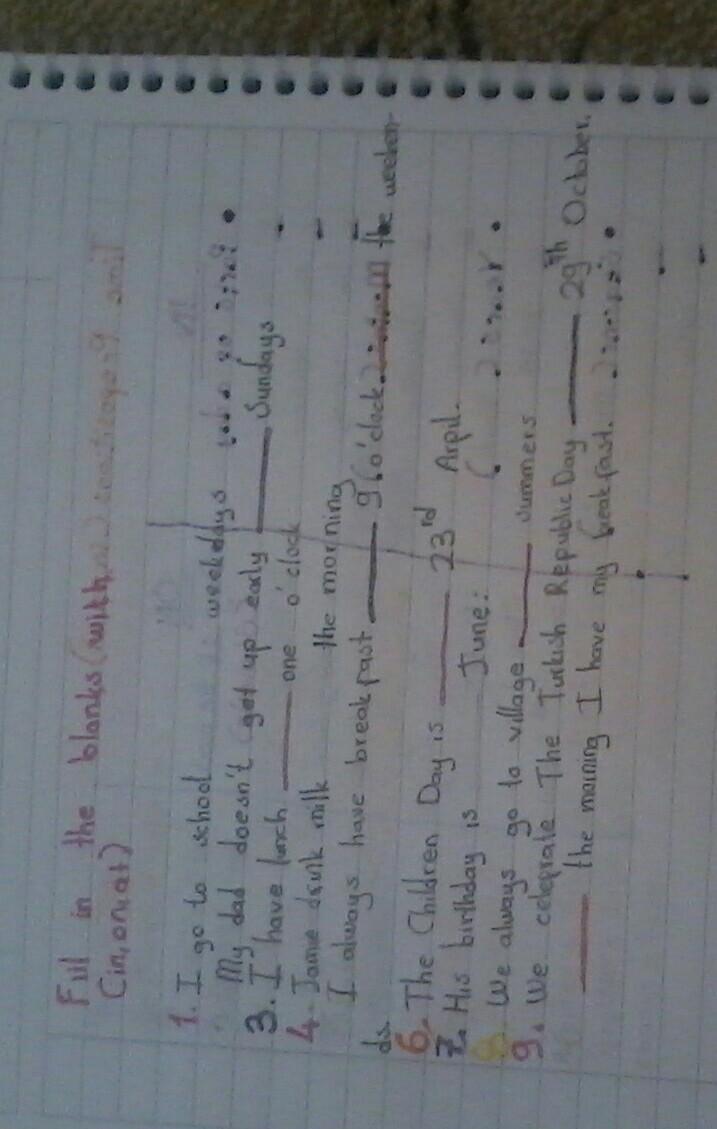 Full in the blanks (with
(in, on, at)
1. I go to school weekdays
My dad doesn't get up early ___ Sundays
3. I have lunch ___ one o'clock
4. Jamie drink milk the morning
I always have breakfast ___ 9 (o'clock) the weeken-
ds.
6. The Children Day is ___ 23rd Arpil.
7. His birthday is June.
8. We always go to village ___ summers
9. We celeprate The Turkish Republic Day ___ 29th October.
___ the morning I have my breakfast.